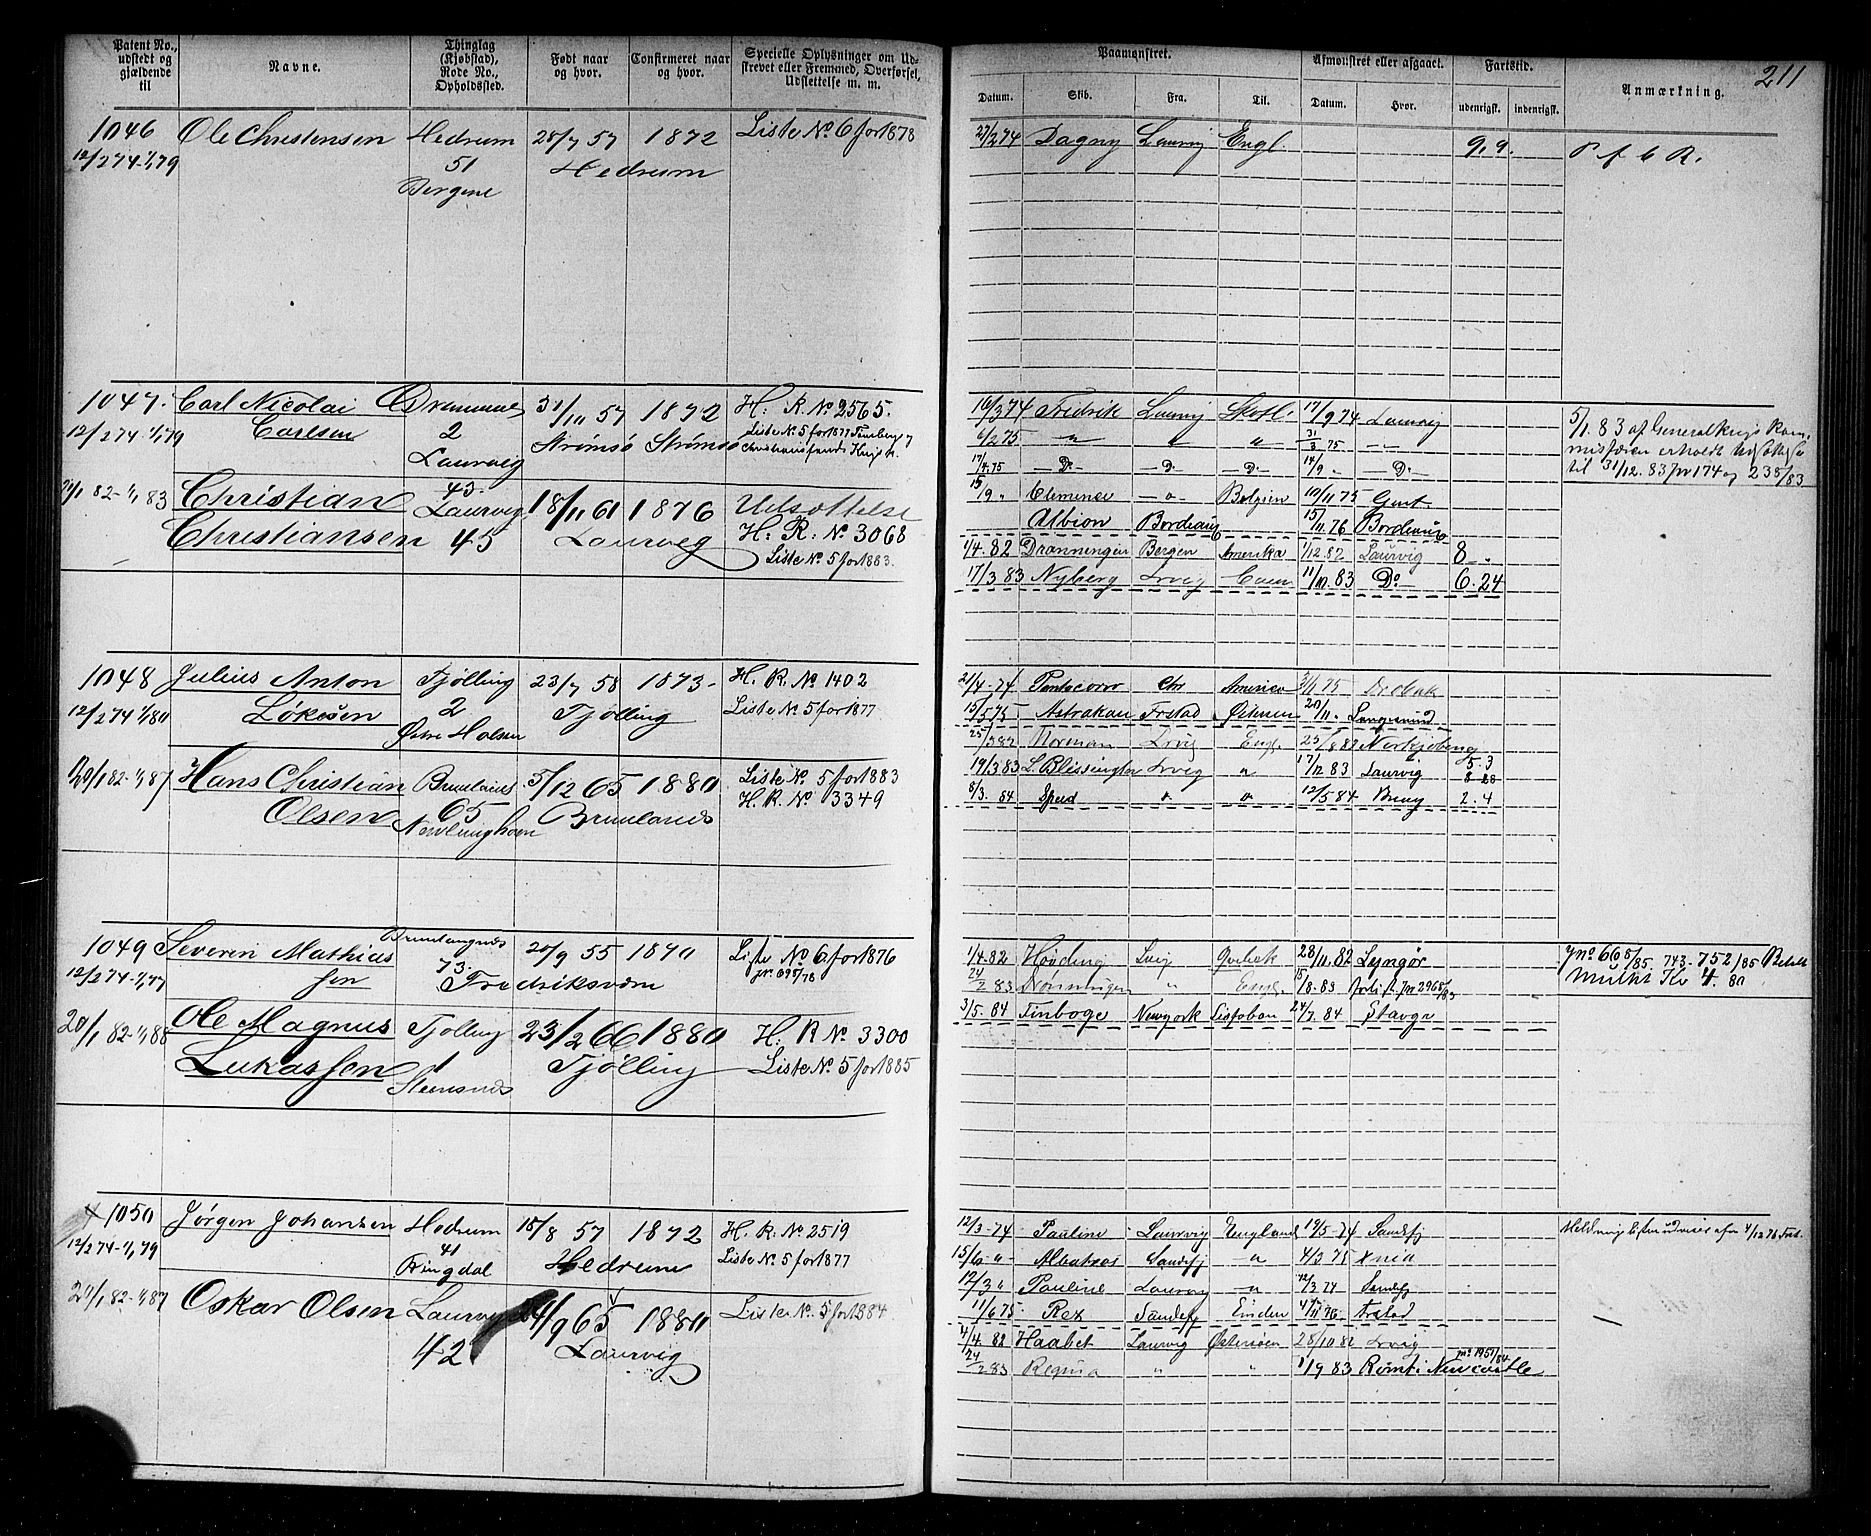 211
Patent No., udstedt og gjældende til
Navne.
Thinglag (Kjøbstad), Rode No., Opholdssted.
Født naar og hvor.
Confirmeret naar og hvor.
Specielle Oplysninger om Udstrevet eller Fremmed, Overførsel, Udslettelse m. m.
Paamønstret.
Afmønstret eller afgaaet.
Fartstid.
Anmærkning.
Datum. Skib. Fra. Til. Datum. Hvor. udenrigsk. indenrigsk.
1046 Ole Christensen Hedrum 28/7 57 1872 Liste No 6 for 1878
12/2 74-1/1 79 51 Hedrum
Bergene
27/2 74 Dagny Laurvig Engl. 9. 9.
1047. Carl Nicolai Drammen 31/11 57 1872 H. R. No 2565.
12/2 74-1/1 79 Carlsen 2 Strømsø Strømsø Liste No 5 for 1877
Laurvig
16/3 74 Fridrik Laurvig Skotl. 17/9 74 Laurvig
6/2 75 " " " 31/3 75 - " -
17/4 75 - Do - - Do - - Do - 14/9 - - Do -
15/9 " Clemence - " - Belgien 10/11 75 Gent
Albion Bordeaux 15/11 76 Bordeaux
5/1 83 af Generalkrigskom-
misæren erholdt Udsættelse
til 31/12. 83 jnr 174 og 238/83
21/1 82-1/1 83 Christian 43 18/11 61 1876 Udsættelse
Christiansen Laurvig 45 Laurvig H. R. No 3068
Liste No 5 for 1883.
1/4. 82 Dronningen Bergen Amerika 1/12. 82 Laurvig 8 "
17/3 83 Nyberg Lrvig Caen 11/10. 83 Do 6. 24
1048 Julius Anton Tjølling 23/7 58 1873 H. R. No 1402
12/2 74 1/1 80 Løkesen 2 Tjølling Liste No 5 for 1877
Østre Holmen
21/4 - 74 Amerika 3/11 75 Drøbak
15/5 75 Astrakan Frstad Østersøen 20/11. Langesund
20/1 82-1/1 87 Hans Christian Brunlanes 5/12 65 1880 Liste No 5 for 1883
Olsen 65 Brunlanes H. R. No 3349
Nevlunghavn
25/3 82 Norman Lrvig Engl. 23/8 82 Norkjøbing 5. 3
19/3 83 L. Blessington Lrvig " 17/12 83 Laurvig 8 28
8/3. 84 Speed " " 12/5 84 2. 4
1049 Severin Mathias Brunlangnes 20/9 55 1870 Liste No 6 for 1876
12/2 74-1/1 77 sen 73. Fredriksværn jnr. 695/78
20/1 82-1/1 88 Ole Magnus Tjølling 23/2 66 1880 H. R No 3300
Lukassen 1 Tjølling Liste No 5 for 1885
Steensnes
1/4 82 Høvding Lvig Quebek 28/11. 82 Lyngør
24/2 83 Dronningen " Engl. 15/8. 83 jnr 2968/83
3/5. 84 Finboge Newyork Lissabon 24/7. 84 Stavgr
jno 668/85. 743-752/85 Betalt
Mulkt Kr 4. 80
1050 Jørgen Johansen Hedrum 18/8 57 1872 H. R. No 2519
12/2 74-1/1 79 41 Hedrum Liste No 5 for 1877
Ringdal
12/3 - 74 Pauline Laurvig England 19/5 - 74 Sandefj
15/6 - " Albatros Sandefj " 4/3 75
12/3 " Pauline Laurvig " Sandefj
11/6 75 Rex Sandefj Emden 4/11 76 Frstad
21/1 82-1/1 87 Oskar Olsen Laurvig 24/9 65 1880 Liste No. 5 for 1884
42 Laurvig
4/4. 82 Haabet Laurvig Østersøen 28/10 82 Lrvig
24/2 83 Regina " " 1/9 83 Rømt i Newcastle no 1951/84